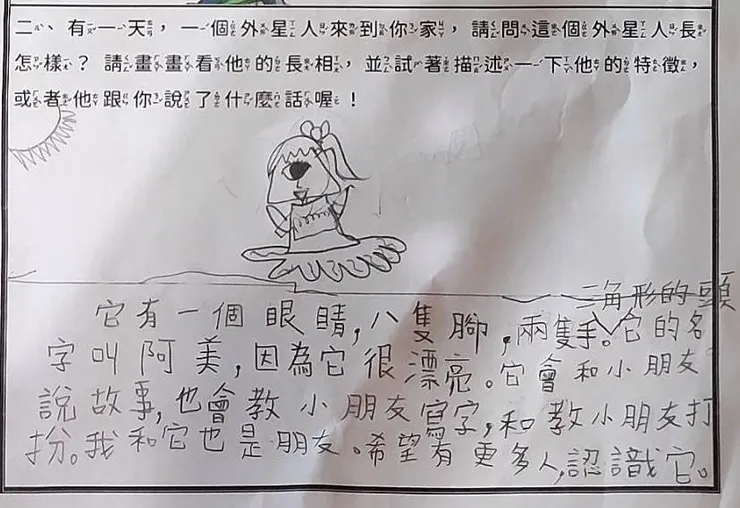 二、有一天，一個外星人來到你家，請問這個外星人長
怎樣？請畫畫看他的長相，並試著描述一下他的特徵，
或者他跟你說了什麼話喔！
三角形的頭
它有一個眼睛，八隻腳，兩隻手。它的名
字叫阿美，因為它很漂亮。它會和小朋友
說故事，也會教小朋友寫字，和教小朋友打
扮。我和它也是朋友。希望有更多人，認識它。